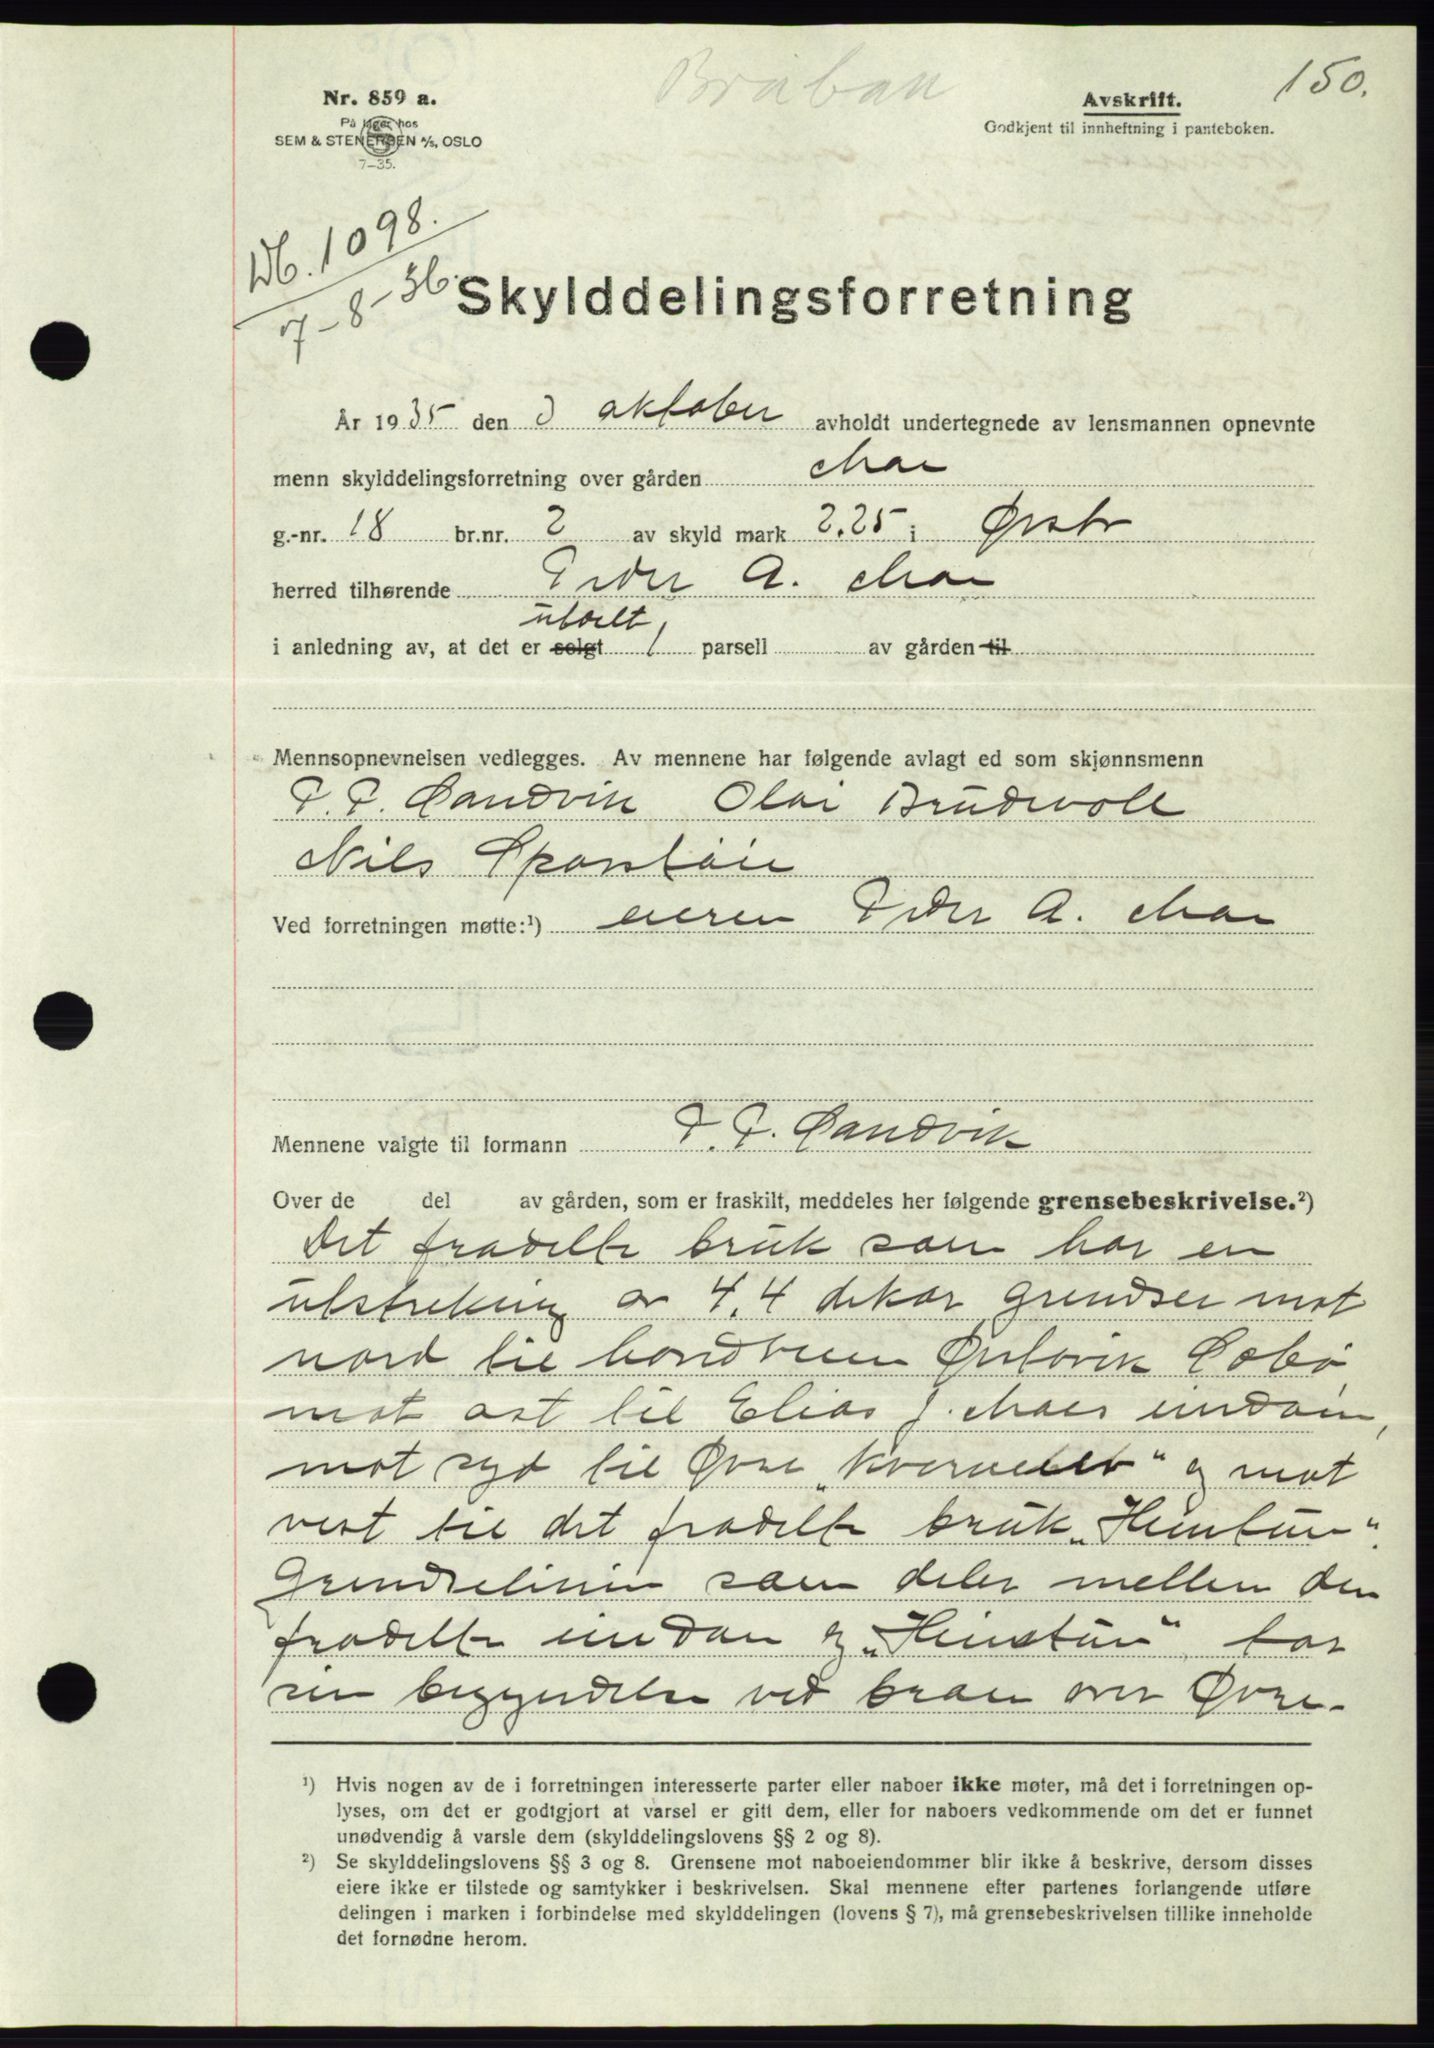 150.
Nr. 859 a.
På lager hos
SEM & STENERSEN A/S, OSLO
7-35.
Avskrift.
Godkjent til innheftning i panteboken.
Db. 1098.
7-8-36.
Skylddelingsforretning
År 1935 den 3 oktober avholdt undertegnede av lensmannen opnevnte
menn skylddelingsforretning over gården Mo
g.-nr. 18 br.nr. 2 av skyld mark 2.25 i Ørsta
herred tilhørende Peder A. Mo
utdelt
i anledning av, at det er solgt 1 parsell av gården til
Mennsopnevnelsen vedlegges. Av mennene har følgende avlagt ed som skjønnsmenn
P. P. Sandvik Olai Brudevoll
Nils Sporstøil
Ved forretningen møtte:¹) eieren Peder A. Mo
Mennene valgte til formann P. P. Sandvik
Over de del av gården, som er fraskilt, meddeles her følgende grensebeskrivelse.²)
Det fradelte bruk som har en
utstrekning av 4,4 dekar grendser mot
nord til bondveien Ørstavik Sæbø
mot øst til Elias J. Moes eiendom,
mot syd til Øvre „Kvernelv" og mot
vest til det fradelte bruk „Heimtun".
Grendselinien som deler mellem den
fradelte eiendom og „Heimtun" tar
sin begyndelse ved broen over Øvre-
¹) Hvis nogen av de i forretningen interesserte parter eller naboer ikke møter, må det i forretningen op-
lyses, om det er godtgjort at varsel er gitt dem, eller for naboers vedkommende om det er funnet
unødvendig å varsle dem (skylddelingslovens §§ 2 og 8).
²) Se skylddelingslovens §§ 3 og 8. Grensene mot naboeiendommer blir ikke å beskrive, dersom disses
eiere ikke er tilstede og samtykker i beskrivelsen. Skal mennene efter partenes forlangende utføre
delingen i marken i forbindelse med skylddelingen (lovens § 7), må grensebeskrivelsen tillike inneholde
det fornødne herom.